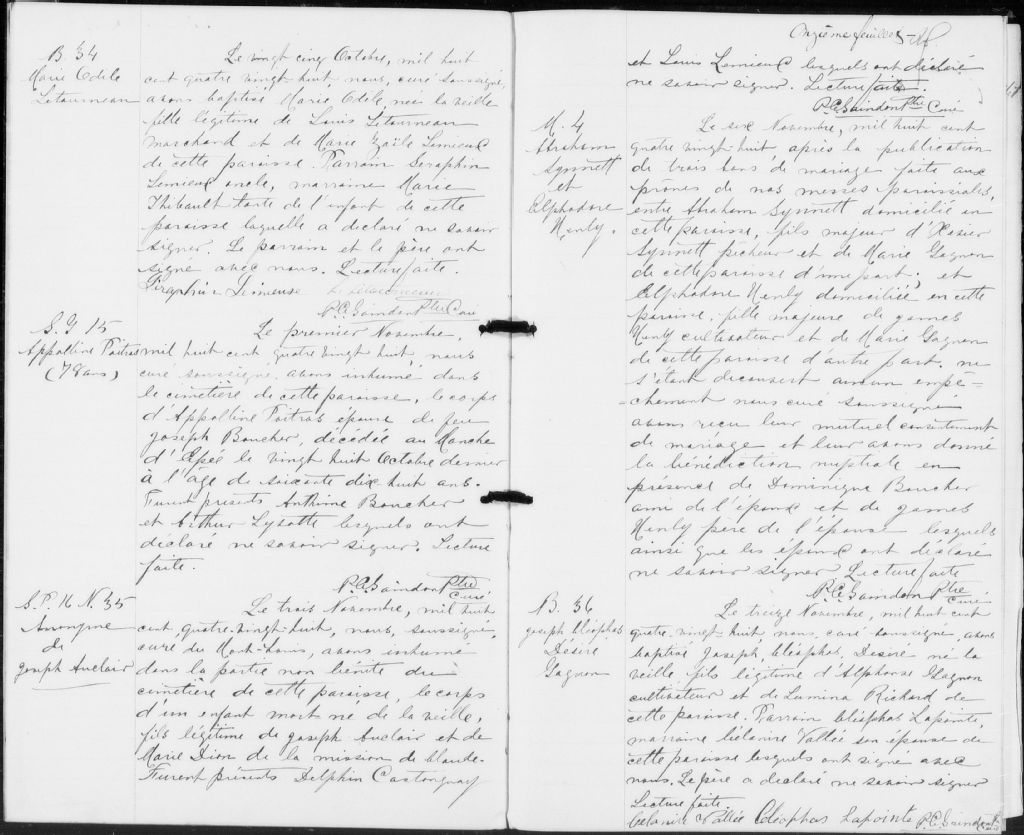 B. 34
Marie Odile
Letourneau
Le vingt cinq Octobre, mil huit
cent quatre vingt huit, nous, curé soussigné,
avons baptisé Marie Odile, née la veille
fille légitime de Louis Letourneau
marchand et de Marie Lemieux
de cette paroisse. Parrain Seraphin
Lemieux oncle, marraine Marie
Thibault tante de l'enfant de cette
paroisse laquelle a declaré ne savoir
signer. Le parrain et le père ont
signé avec nous. Lecture faite.
Seraphin Lemieuse L. Letourneau
P.C. Saindon Ptre Curé
S. 15
Appolline Poitras
(78 ans)
Le premier Novembre,
mil huit cent quatre vingt huit, nous
curé soussigné avons inhumé dans
le cimetière de cette paroisse, le corps
d'Appolline Poitras épouse de feu
Joseph Boucher, décédée au Manche
d'Épée le vingt huit Octobre dernier
à l'âge de soixante dix huit ans.
Furent présents Anthime Boucher
et Arthur Lysotte lesquels ont
déclaré ne savoir signer. Lecture
faite.
P.C. Saindon Ptre
Curé
S.P. 16 N. 35
Anonyme
de
Joseph Auclair
Le trois Novembre, mil huit
cent, quatre-vingt huit, nous, soussigné,
curé du Mont-Louis, avons inhumé
dans la partie non bénite du
cimetière de cette paroisse, le corps
d'un enfant mort né de la veille,
fils légitime de Joseph Auclair et de
Marie Dion de la mission de Claude
Furent présents Delphin Castonguay
Onzième feuillet
et Louis Lemieux lesquels ont déclaré
ne savoir signer. Lecture faite.
P.C. Saindon Ptre Curé
M. 4
Abraham
Synnett
et
Elphodore
Henly.
Le six Novembre, mil huit cent
quatre vingt huit après la publication
de trois bans de mariage faite aux
prônes de nos messes paroissiales,
entre Abraham Synnett domicilié en
cette paroisse, fils majeur d'Xavier
Synnett pêcheur et de Marie Gagnon
de cette paroisse d'une part; et
Elphodore Henly domiciliée en cette
paroisse, fille majeure de James
Henly cultivateur et de Marie Gagnon
de cette paroisse d'autre part. ne
s'étant decouvert aucun empê=
=chement nous curé soussigné
avons reçu leur mutuel consentement
de mariage et leur avons donné
la bénédiction nuptiale en
présence de Dominique Boucher
ami de l'époux et de James
Henly père de l'épouse lesquels
ainsi que les époux ont déclaré
ne savoir signer Lecture faite
P.C. Saindon Ptre
Curé
B. 36
Joseph Cléophas
Désiré
Gagnon
Le treize Novembre, mil huit cent
quatre-vingt huit, nous, curé soussigné, avons
baptisé Joseph, Cléophas, Désiré né la
veille, fils légitime d'Alphonse Gagnon
cultivateur et de Lumina Richard de
cette paroisse. Parrain Cléophas Lapointe,
marraine Célanire Vallée son épouse de
cette paroisse lesquels ont signé avec
nous. Le père a déclaré ne savoir signer
Lecture faite.
Célanire Vallée Cléophas Lapointe P.C. Saindon Ptre
Curé